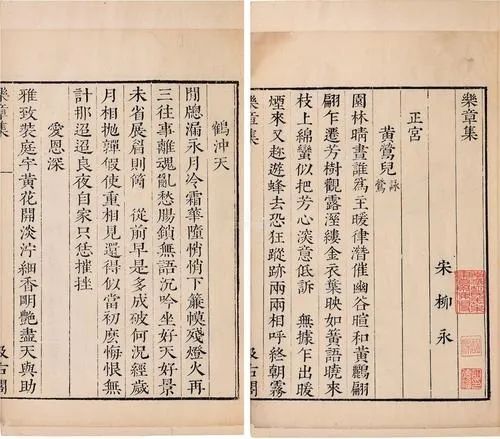 樂章集
宋 柳永
正宮
黃鶯兒 詠鶯
園林晴晝誰爲主暖律潛催幽谷暄和黃鸝翩
翩乍遷芳樹觀露溼縷金衣葉映如簧語曉來
枝上綿蠻似把芳心深意低訴 無據乍出暖
煙來又趂遊蜂去恣狂蹤跡兩兩相呼終朝霧
樂章集
鶴沖天
閒牕漏永月冷霜華墮悄悄下簾幙殘燈火再
三往事離魂亂愁腸鎖無語沉吟坐好天好景
未省展眉則箇 從前早是多成破何況經歲
月相抛嚲假使重相見還得似當初麽悔恨無
計那迢迢良夜自家只恁摧挫
愛恩深
雅致裝庭宇黃花開淡泞細香明艷盡天與助
樂章集
汲古閣